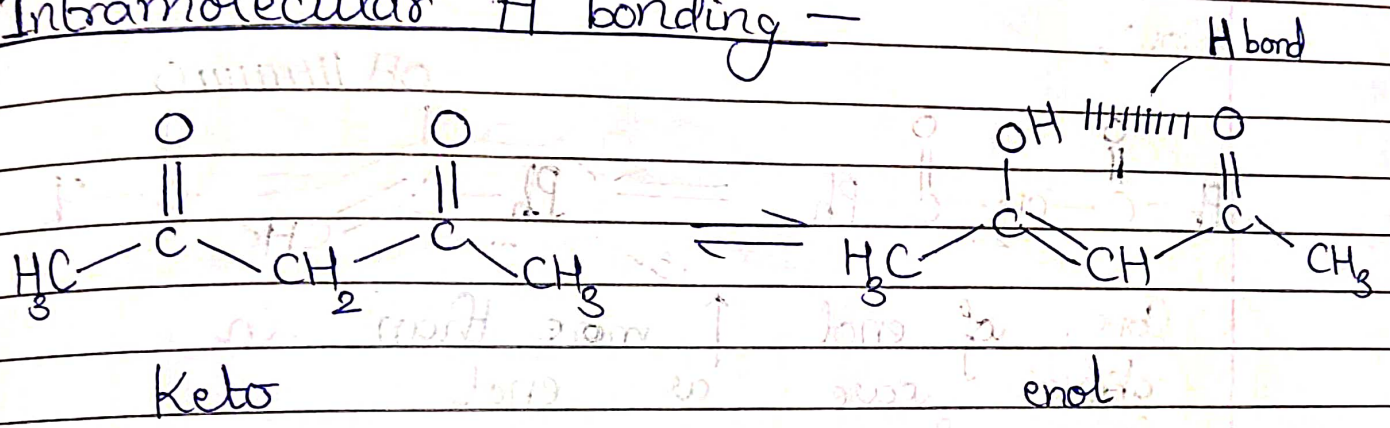 Intramolecular H bonding —
H bond
O O OH O
H3C C CH2 C CH3 ⇌ H3C C CH C CH3
Keto enol